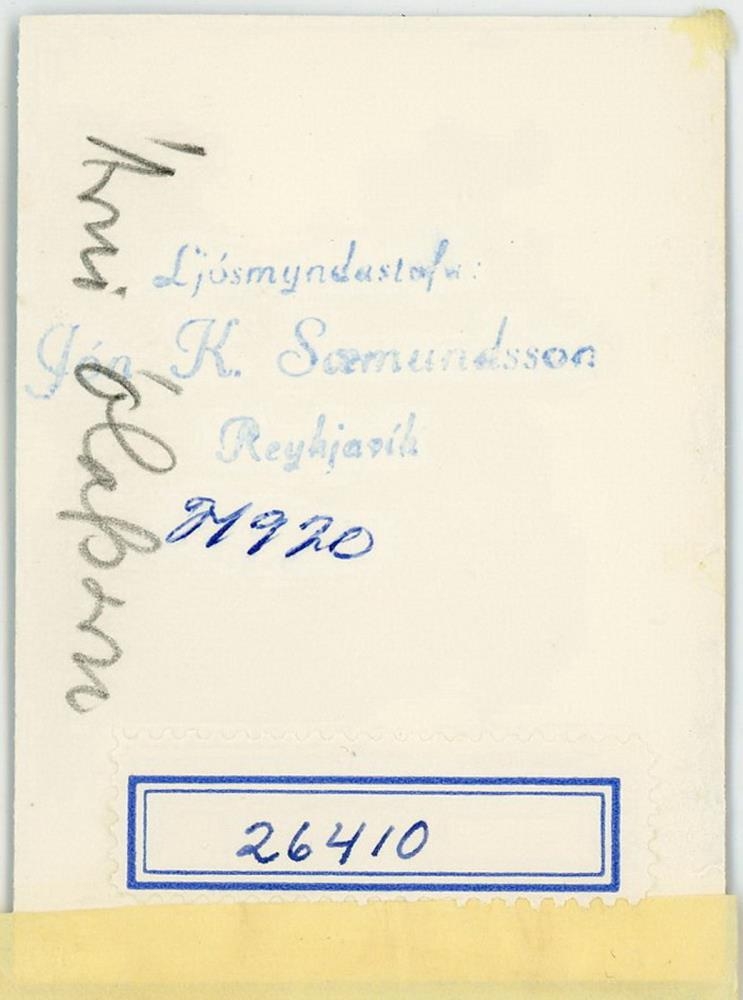 Ljósmyndastofa:
Jón K. Sæmundsson
Reykjavík
H920
26410
Árni Ólafsson